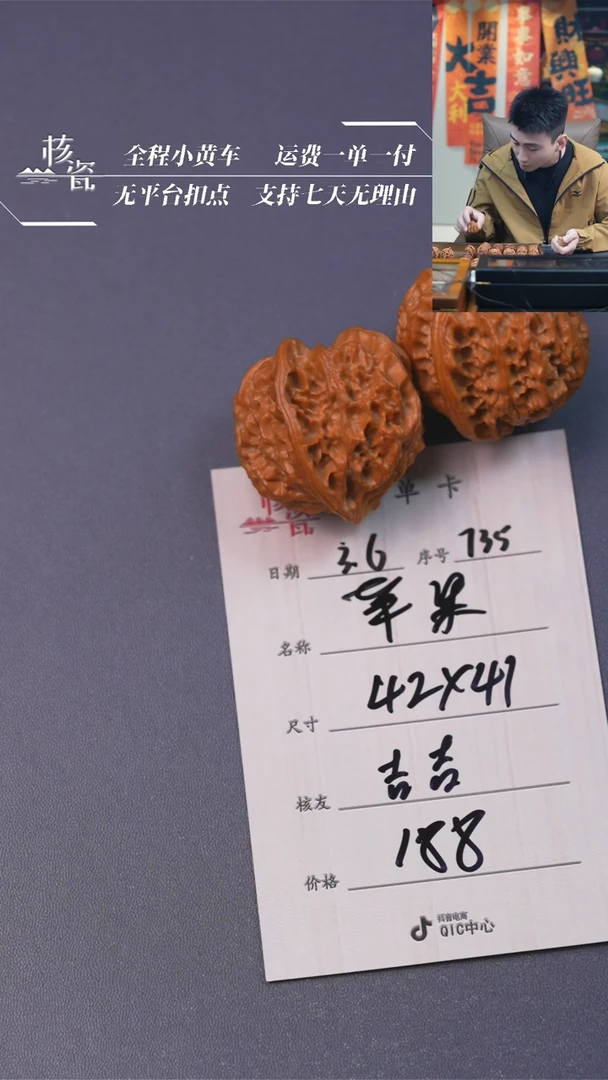 核瓷
全程小黄车 运费一单一付
无平台扣点 支持七天无理由
開業
大吉
大利
事事如意
財興旺
核瓷
单卡
日期 3.6 序号 735
名称
尺寸 42X41
核友 吉吉
价格 188
抖音电商
QIC中心